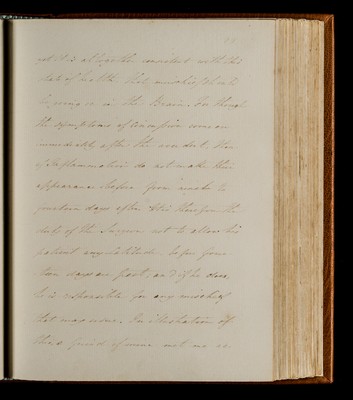 it is altogether consistent with this
state of health that mischief should
be going on in the Brain. For though
the symptoms of Concussion come on
immediately after the accident, those
of Inflammation do not make their
appearance before from week to
fourteen days after. It is therefore the
duty of the Surgeon not to allow his
patient any latitude before
ten days are past, and if he does,
he is responsible for any mischief
that may ensue. In illustration of
this a friend of mine met me